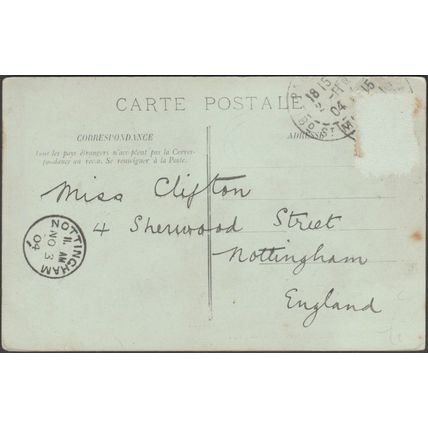 CARTE POSTALE
CORRESPONDANCE
ADRESSE
Tous les pays étrangers n'acceptent pas la Corres-
pondance au recto. Se renseigner à la Poste.
Miss Clifton
4 Sherwood Street
Nottingham
England
NOTTINGHAM
11. AM
NO 3
04
18 15
04
15